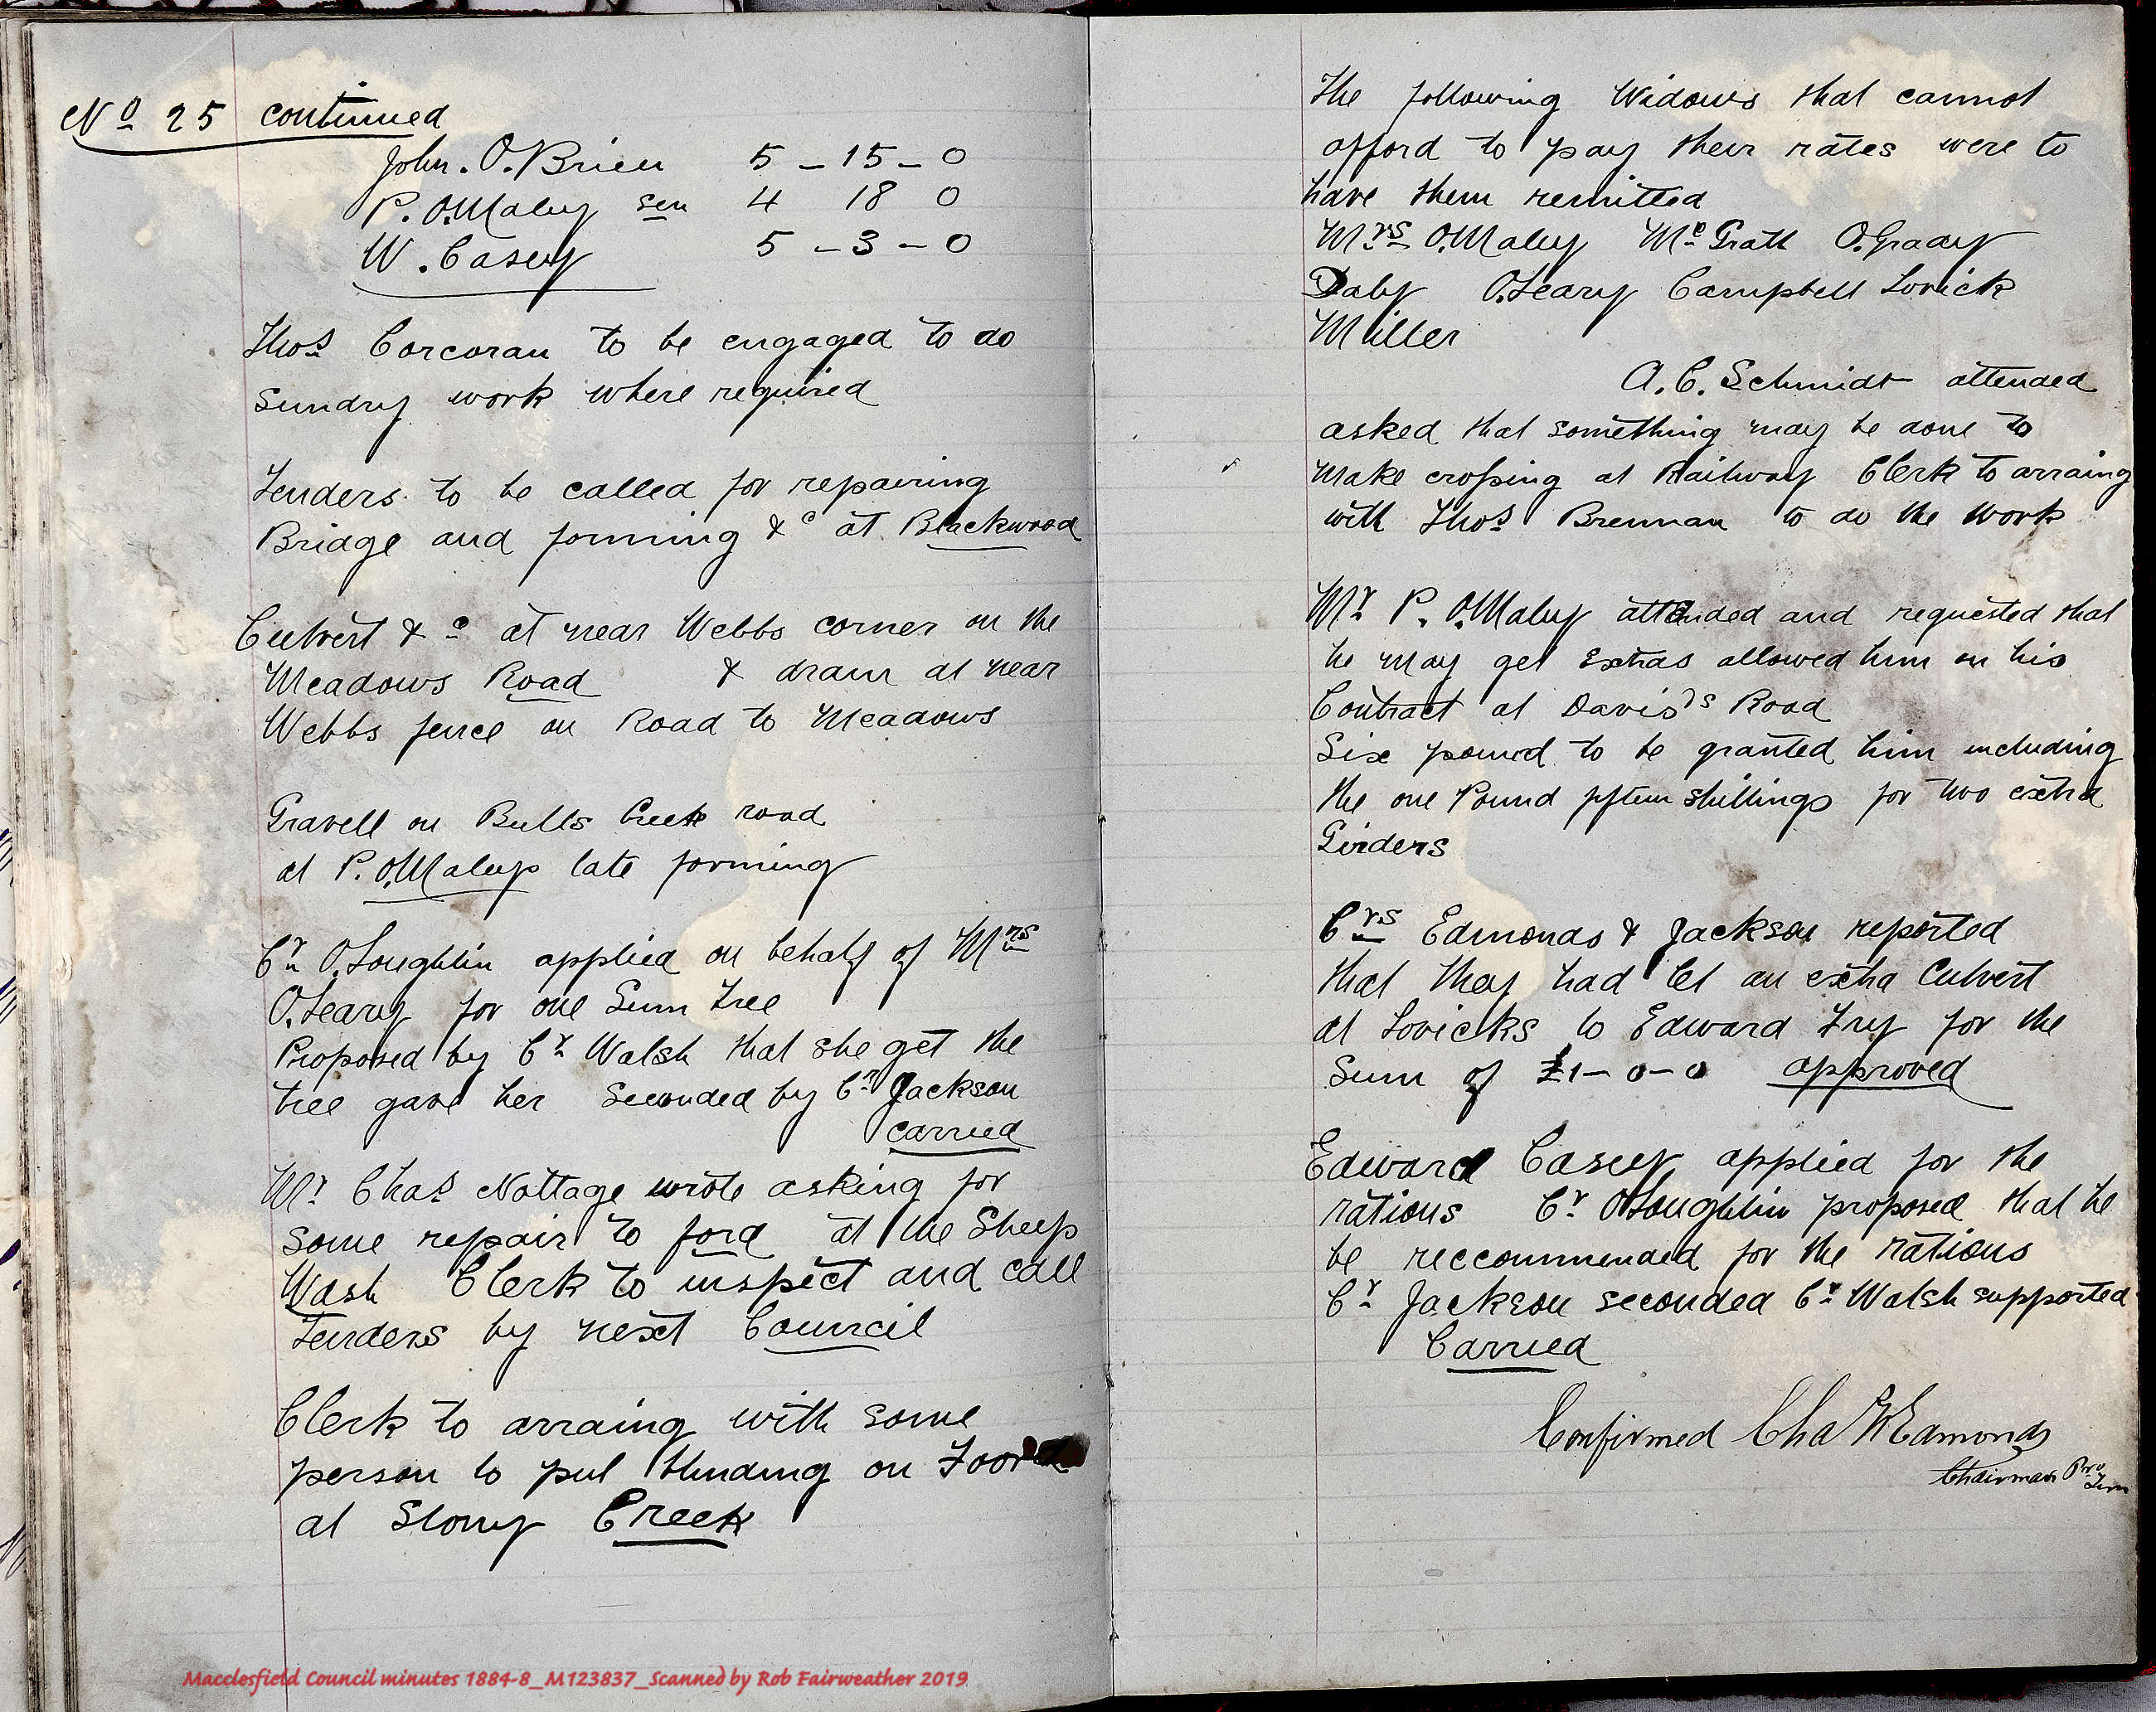 No 25 continued
John. O.Brien 5 - 15 - 0
P. O.Maley sen 4 18 0
W. Casey 5 - 3 - 0
Thos Corcoran to be engaged to do
sundry work where required
Tenders to be called for repairing
Bridge and forming &c at Blackwood
Culvert &c at near Webbs corner on the
Meadows Road & drain at near
Webbs fence on Road to Meadows
Gravell on Bulls Creek road
at P. O.Maleys late forming
Cr O.Loughlin applied on behalf of Mrs
O.Leary for one Gum Tree
Proposed by Cr Walsh that she get the
tree gave her Seconded by Cr Jackson
carried
Mr Chas Nottage wrote asking for
some repair to ford at the Sheep
Wash Clerk to inspect and call
Tenders by next Council
Clerk to arraing with some
person to put blinding on Foord
at Stony Creek
The following Widows that cannot
afford to pay their rates were to
have them remitted
Mrs O.Maley Mc Grath O.Grady
Daly O.Leary Campbell Lovick
Miller
A. C. Schmidt attended
asked that something may be done to
make crossing at Railway Clerk to arraing
with Thos Brennan to do the work
Mr P. O.Maley attended and requested that
he may get extras allowed him on his
Contract at Davis's Road
Six pound to be granted him including
the one Pound fifteen shillings for two extra
Girders
Crs Edmonds & Jackson reported
that they had let an extra Culvert
at Lovicks to Edward Fry for the
Sum of £1-0-0 approved
Edward Casey applied for the
rations Cr O.Loughlin proposed that he
be reccommended for the rations
Cr Jackson seconded Cr Walsh supported
Carried
Confirmed Cha W Edmonds
Chairman Pro
Tem
Macclesfield Council minutes 1884-8_M123837_Scanned by Rob Fairweather 2019